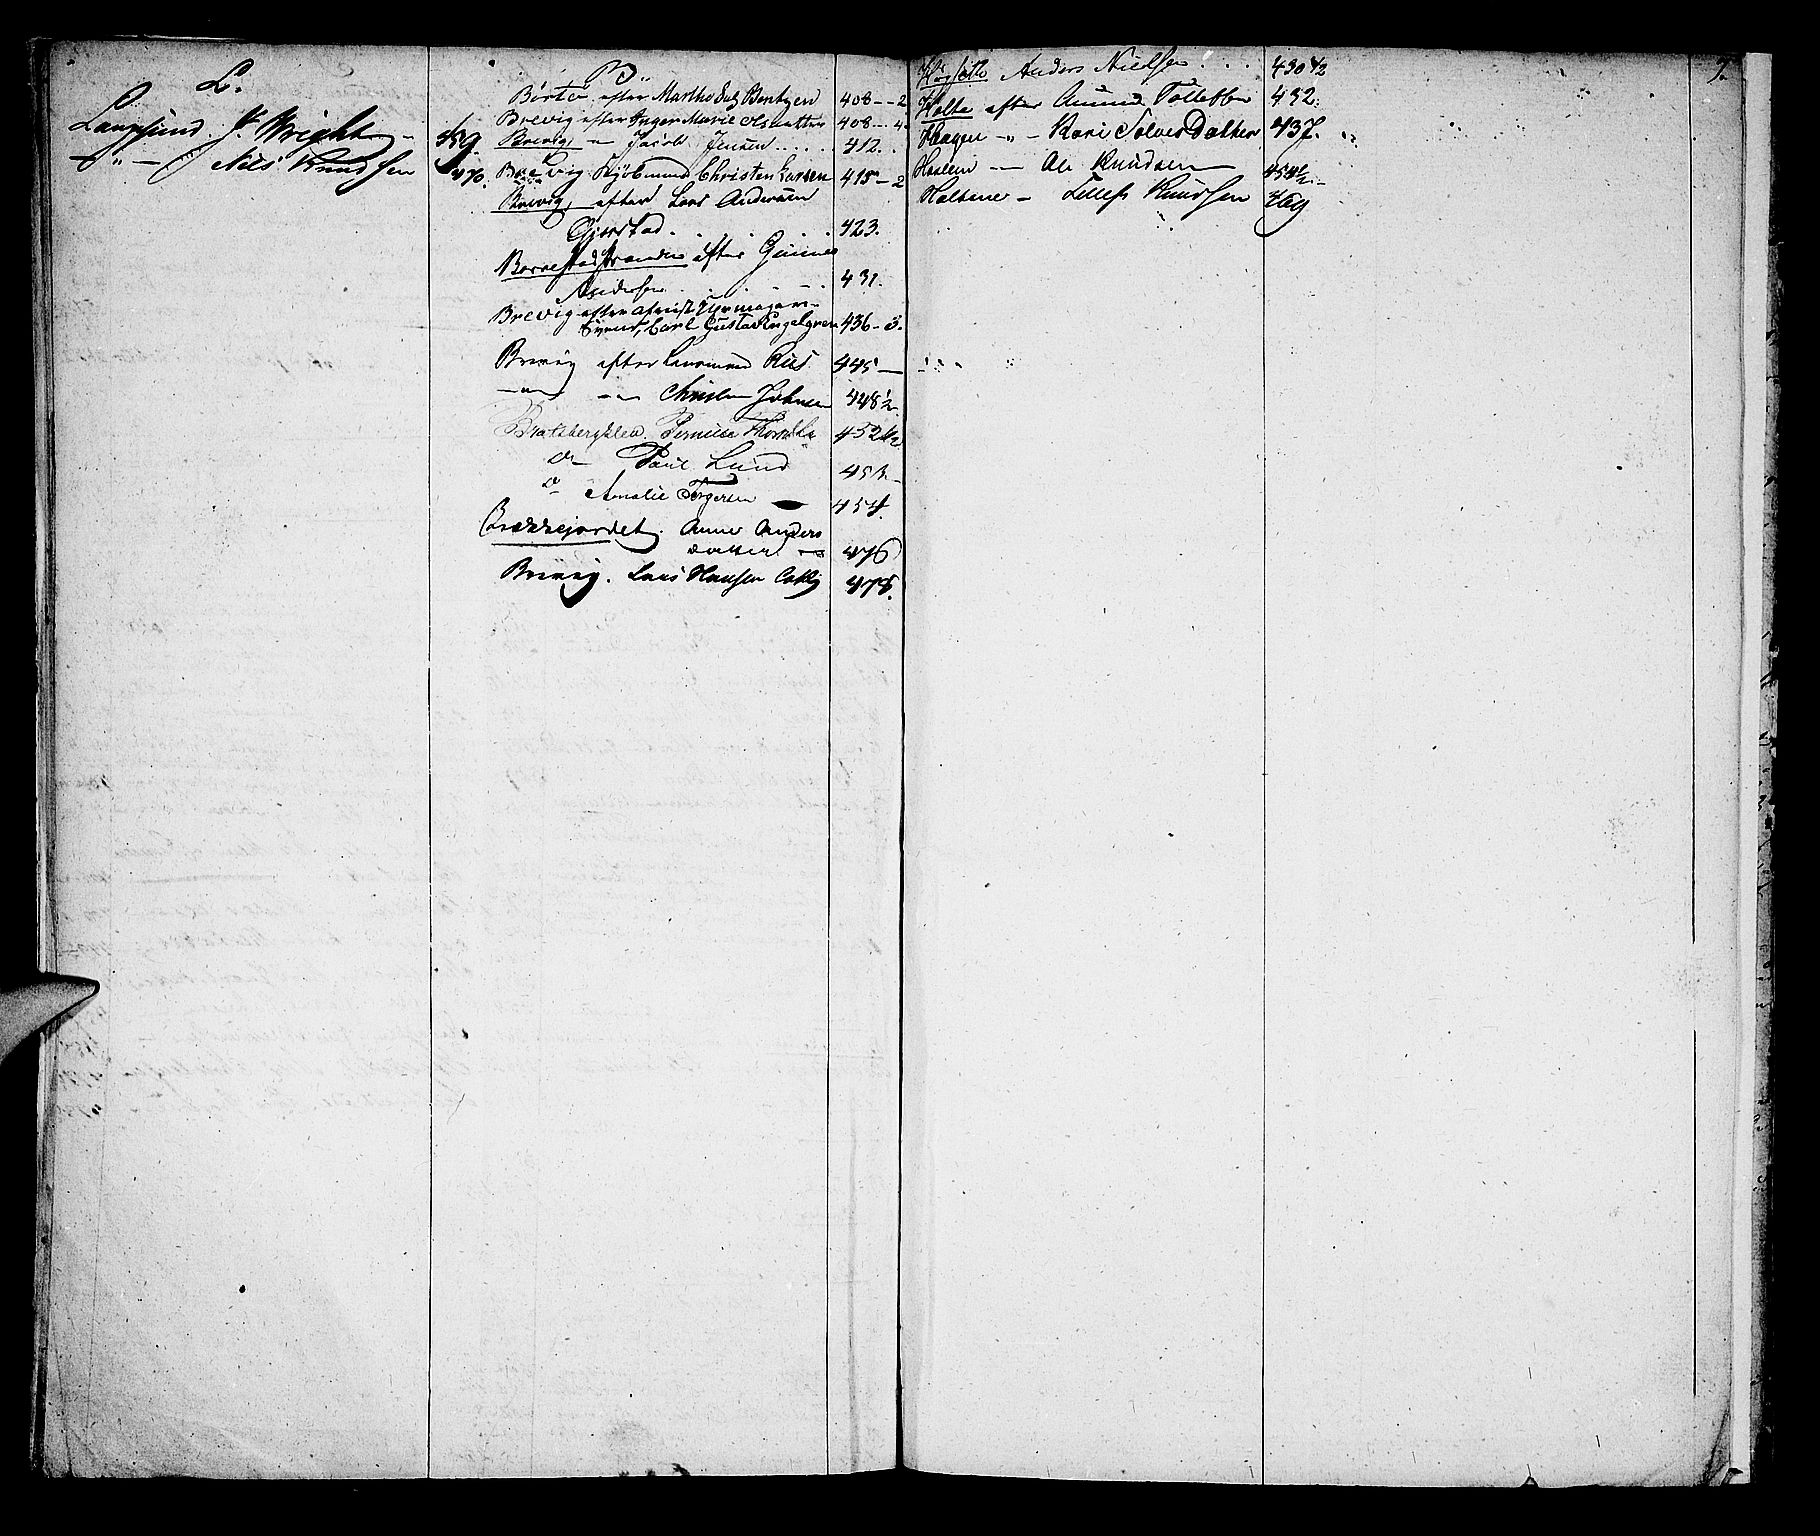 L.
Langesund. J. Wright - 459.
- " - Niels Knudsen 470.
B.
Børte efter Marthe Bentzen 408--2
Brevig efter Inger Marie Olsdatter 408--4.
Brevig, - Jacob Jensen ...... 412..
Brevig Kjøbmand Christen Larsen 415-2
Brevig, efter Lars Andersen
Gjerstad. . . . . 423.
Borrestadstranden efter Gunner
Andersen. . . . . 431.
Brevig efter
Carl Gustav Engelgren 436-3.
Brevig efter Riis 445-
-"- -"- Christen Johnsen 448½.
Bratsbergkleven. Pernille 452½
do Paul Lund 453.-
do Amalie Torgersen - 454.
Brækkejordet. Anne Anders
datter - 476
Brevig. Lars Hansen 478.
7.
Anders Nielsen . . . 430½
Holte efter Amund Tollefsen 432.
Haagen -"- Kari Solves Datter 437.
Haslem -"- Ole Knudsen 454½.-
Holtene - Tellef Knudsen 469